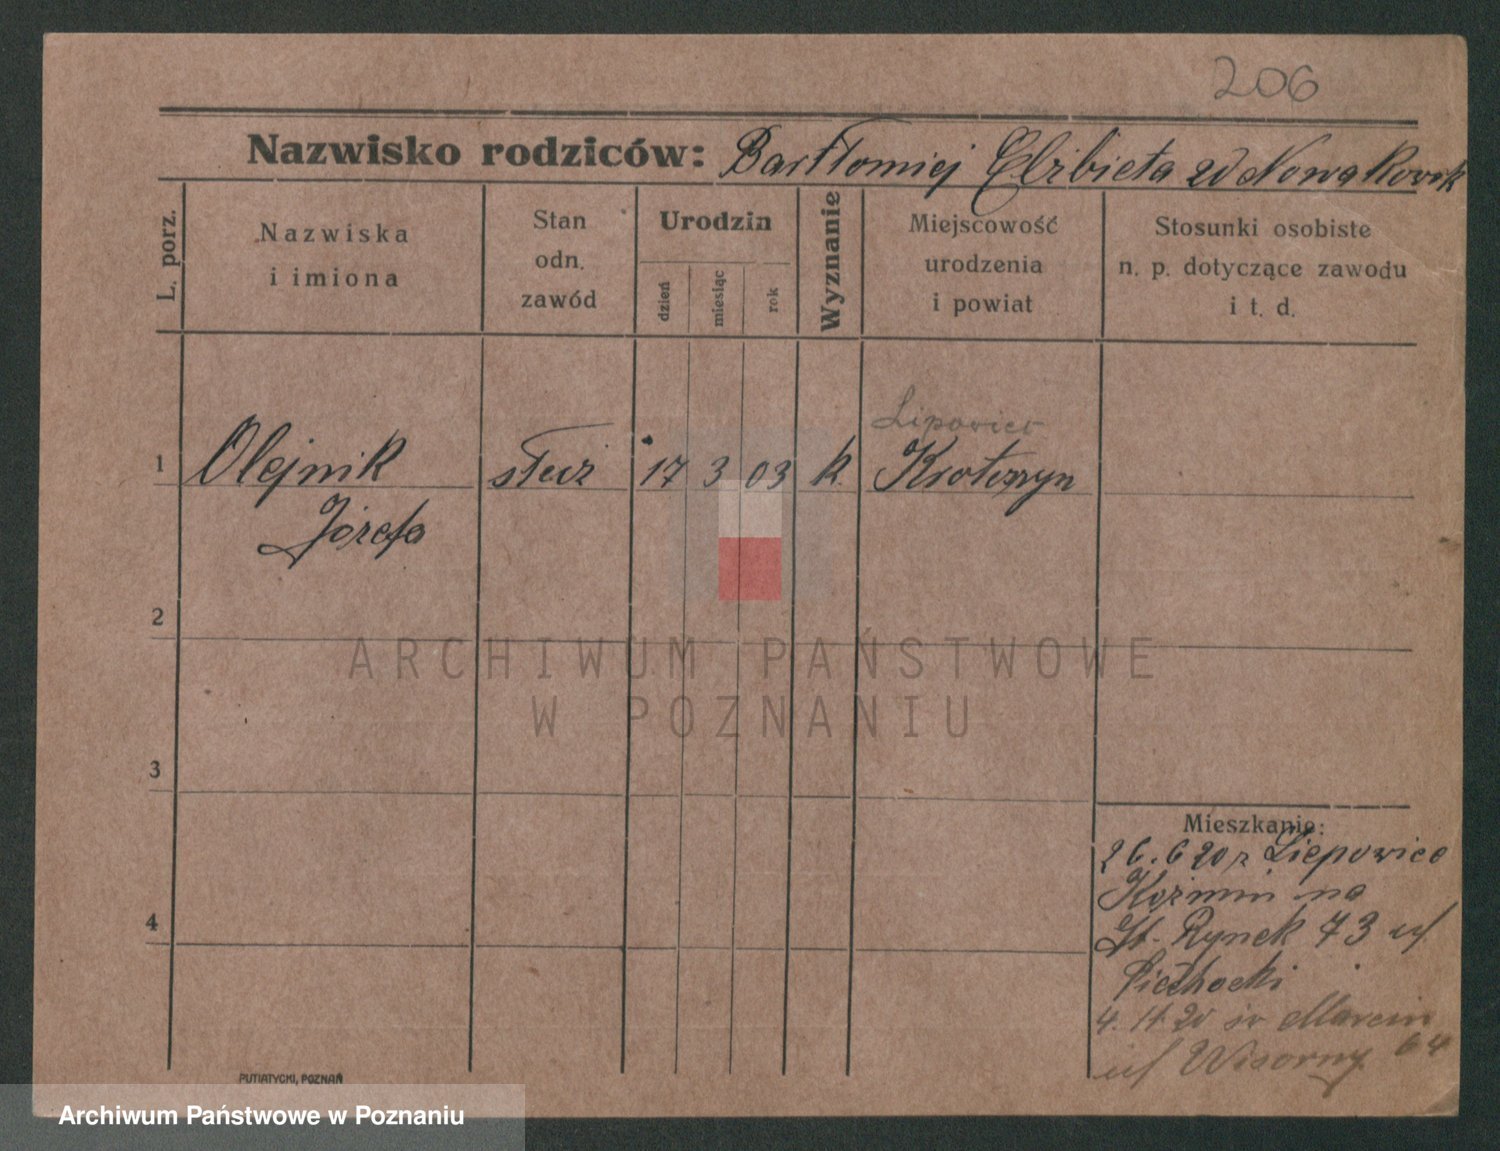 206
Nazwisko rodziców: Bartłomiej Elżbieta zd Nowak
L. porz.
Nazwiska
i imiona
Stan
odn.
zawód
Urodzin
dzień
miesiąc
rok
Wyznanie
Miejscowość
urodzenia
i powiat
Stosunki osobiste
n. p. dotyczące zawodu
i t. d.
Lipowiec
1 Olejnik służ 17 3 03 k. Krotoszyn
Józefa
2
ARCHIWUM PAŃSTWOWE
W POZNANIU
3
Mieszkanie:
26.6 20 z Liepowiec
Koźmin na
Rynek 73 u/
4
4. 11. 20 św Marcin
64
u/
PUTIATYCKI, POZNAŃ
Archiwum Państwowe w Poznaniu